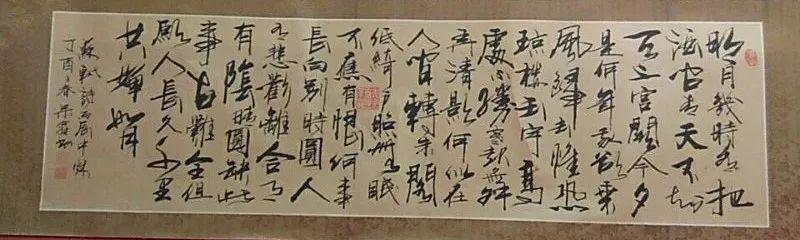 明月幾時有把
酒問青天不知
天上宮闕今夕
是何年我欲乘
風歸去惟恐
瓊樓玉宇高
處不勝寒起舞
弄清影何似在
人間轉朱閣
低綺户照無眠
不應有恨何事
長向別時圓人
有悲歡離合月
有陰晴圓缺此
事古難全但
願人長久千里
共嬋娟
蘇軾詩
丁酉春